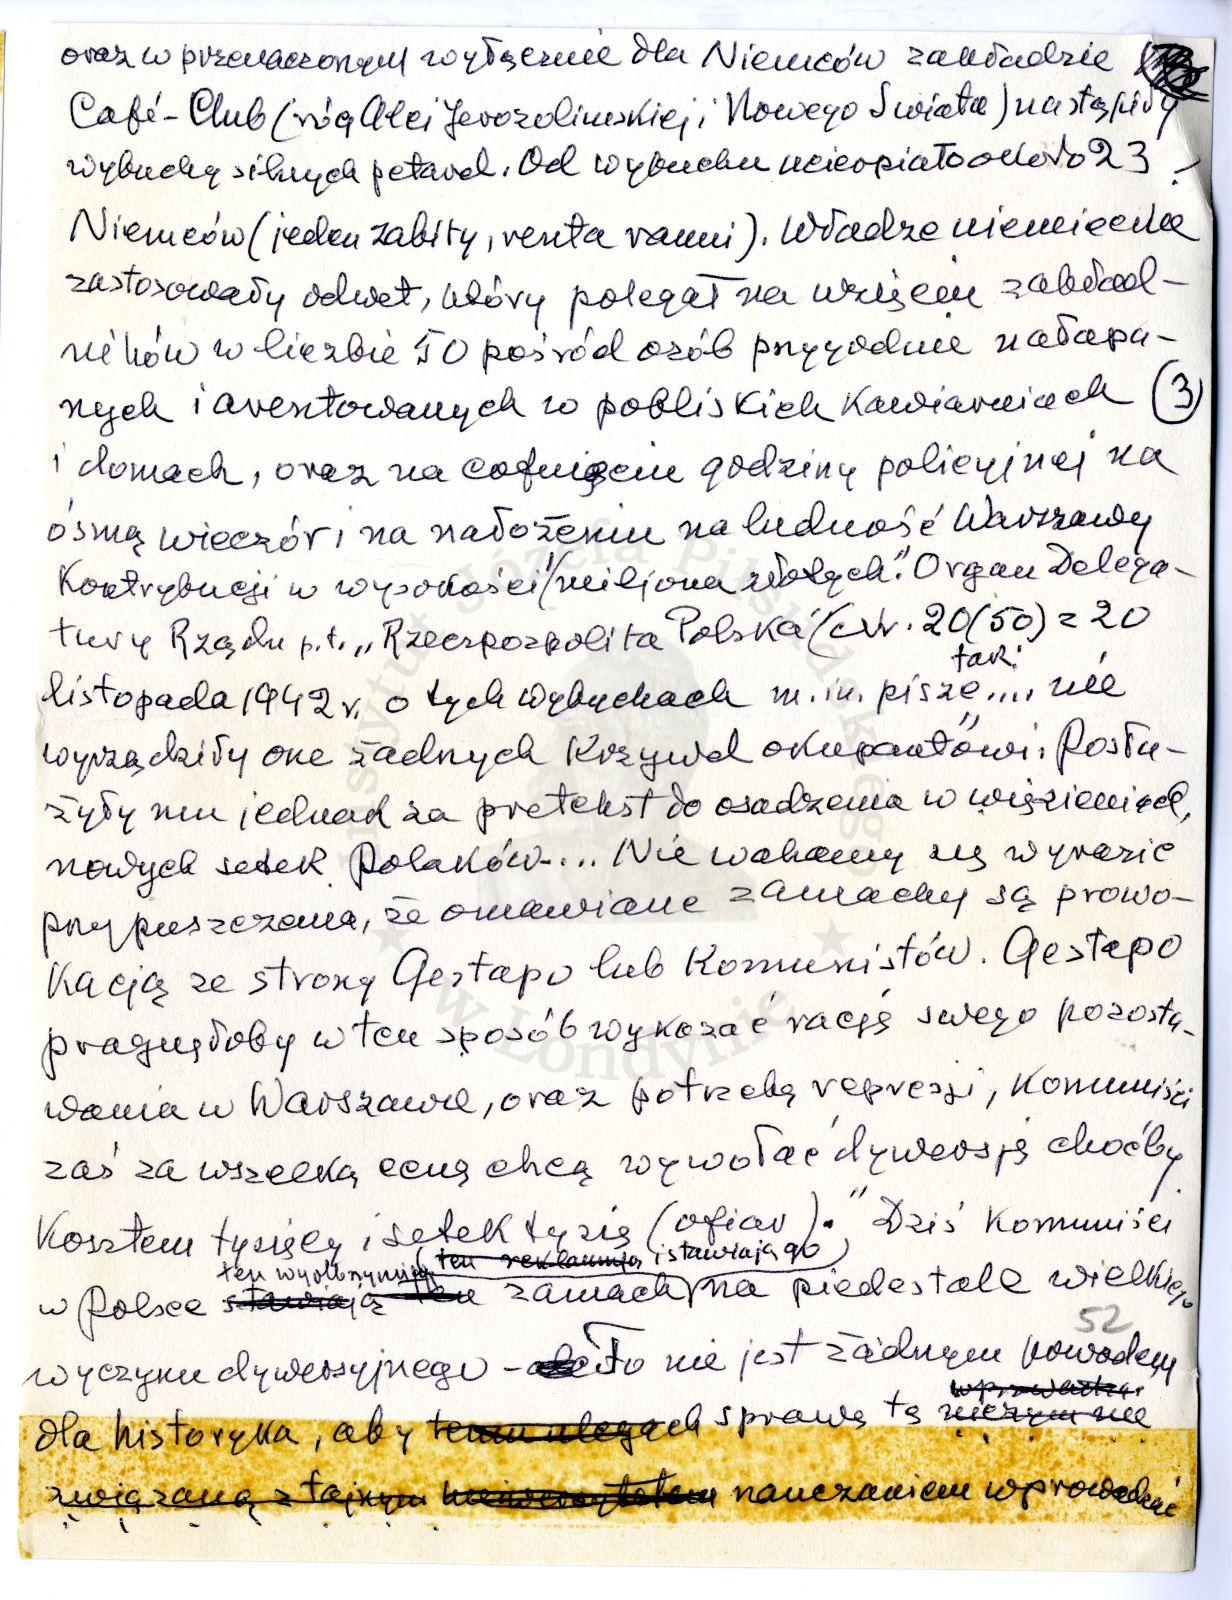 oraz w przeznaczonym wyłącznie dla Niemców zakładzie
Café-Club (róg Alei Jerozolimskiej i Nowego Świata) nastąpiły
wybuchy silnych petard. Od wybuchu ucierpiało około 23
Niemców (jeden zabity, reszta ranni). Władze niemieckie
zastosowały odwet, który polegał na wzięciu zakład-
ników w liczbie 50 pośród osób przygodnie nałapa-
nych i aresztowanych w pobliskich kawiarniach (3)
i domach, oraz na cofnięciu godziny policyjnej na
ósmą wieczór i na nałożeniu na ludność Warszawy
Kontrybucji w wysokości 1 miljona złotych". Organ Delega-
tury Rządu p.t. „Rzeczpospolita Polska" (Nr. 20(50) z 20
listopada 1942 r. o tych wybuchach m.in. pisze tak: "... nie
wyrządziły one żadnych krzywd okupantowi. Posłu-
żyły mu jednak za pretekst do osadzenia w więzieniach,
nowych setek Polaków.... Nie wahamy się wyrazić
przypuszczenia, że omawiane zamachy są prowo-
kacją ze strony Gestapo lub Komunistów. Gestapo
pragnęłoby w ten sposób wykazać rację swego pozosta-
wania w Warszawie, oraz potrzebę represji, Komuniści
zaś za wszelką cenę chcą wywołać dywersję choćby
Kosztem tysięcy i setek tysię (ofiar)." Dziś Komuniści
ten wyolbrzymiają (ten reklamują i stawiają go)
w Polsce stawiają ten zamach na piedestale wielkiego
52
wyczynu dywersyjnego - To nie jest żadnym powodem
dla historyka, aby temu ulegach sprawę tę niczym nie
związaną z tajnym uniwersytetem nauczaniem wprowadzać